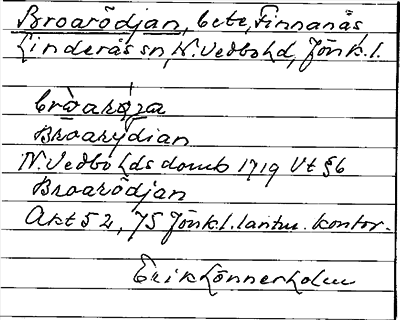 Broarödjan, bete, Finnanäs
Linderås sn, N. Vedbo hd, Jönk. l.
Broarydian
N. Vedbo hds domb 1719 Vt §6
Broarödjan
Akt 52, 75 Jönk. l. lantm. kontor.
Erik Lönnerholm